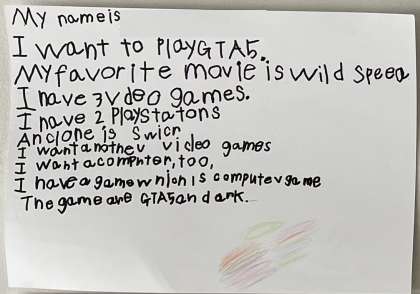 My name is
I want to Play GTA5.
My favorite movie is wild speed
I have 3 vdeo games.
I have 2 Playstatons
An clone is Swicn
I want anotheu video games
I want a compnter, too,
I have a game wnich is computev game
The game are GTA5 an dark.